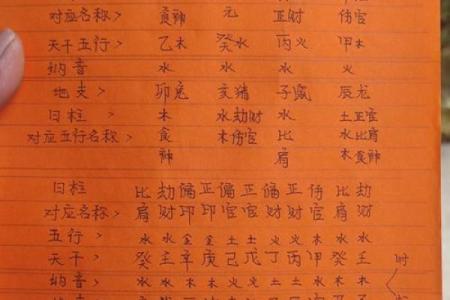 对应名称> 食神 元 正财 伤官
天干五行> 乙木 癸水 丙火 甲木
纳音 水 水 水 火
地支> 卯兔 亥猪 子鼠 辰龙
日柱 木 水劫财 水 土正官
对应五行名称> 食 木伤官 比 水比肩
神 肩 木食神
日柱 比 劫 偏 正 偏 正 偏 正 伤 比 劫
对应名称> 肩 财 印 印 官 官 财 财 官 肩 财
五行> 水 水 金 金 土 土 火 火 木 水 水
天干> 癸 壬 辛 庚 己 戊 丁 丙 甲 癸 壬
时
纳音> 水 木 木 火 火 土 土 水 水 木 木